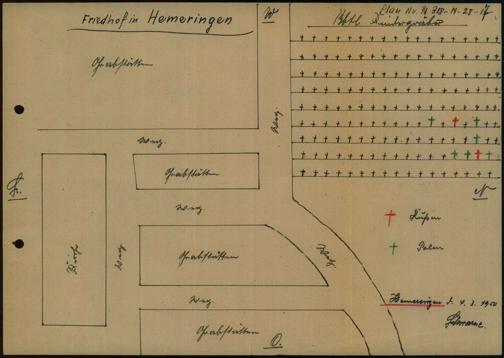 Friedhof in Hemeringen
W
Abtl. Kindergräber
Grabstätten
Weg.
Weg.
Grabstätten
N
Weg.
Russen
Weg
Weg
Polen
Grabstätten
Weg.
Hemeringen d. 4. 3. 1950
Grabstätten
O.